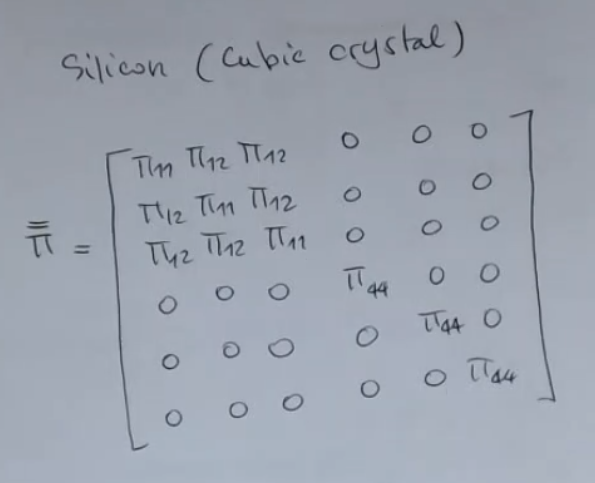 Silicon (Cubic crystal)
π11 π12 π12 0 0 0
π12 π11 π12 0 0 0
π = π12 π12 π11 0 0 0
0 0 0 π44 0 0
0 0 0 0 π44 0
0 0 0 0 0 π44